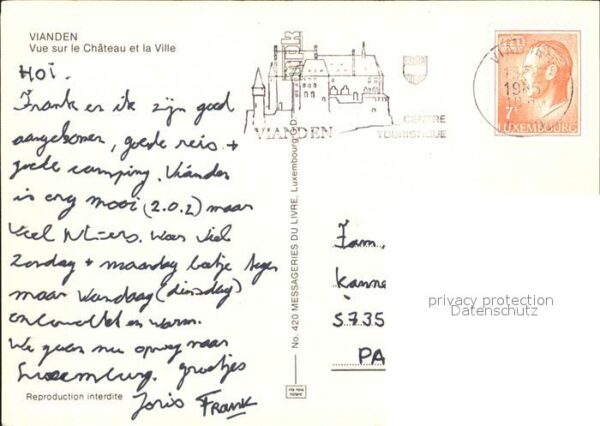 VIANDEN
Vue sur le Château et la Ville
HOI.
Frank en ik zijn goed
aangekomen, goede reis +
goede camping. Vianden
is erg mooi (z.o.z.) maar
veel Ned.ers. Was veel
Zondag + maandag beetje regen
maar vandaag (dinsdag)
onbewolkt en warm.
We gaan nu op weg naar
Luxemburg. groetjes
Joris FRANK
Reproduction interdite
No. 420 MESSAGERIES DU LIVRE, Luxembourg
VIANDEN
CENTRE
TOURISTIQUE
1985
7F
LUXEMBOURG
Fam.
Kanne
5735
PA
privacy protection
Datenschutz